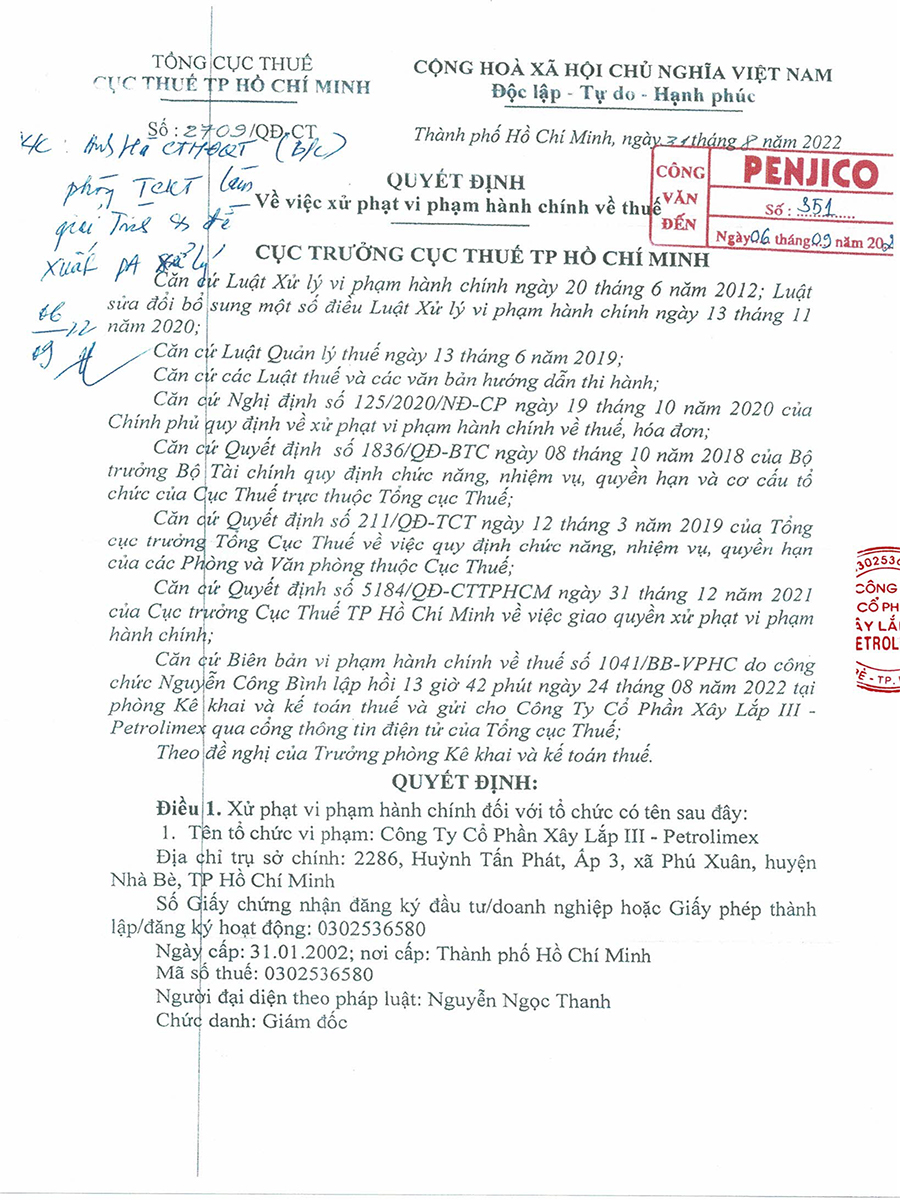 TỔNG CỤC THUẾ
CỤC THUẾ TP HỒ CHÍ MINH
CỘNG HOÀ XÃ HỘI CHỦ NGHĨA VIỆT NAM
Độc lập - Tự do - Hạnh phúc
Số : 2709/QĐ-CT
Thành phố Hồ Chí Minh, ngày 31 tháng 8 năm 2022
phòng TCKT làm
xuất PA xử lý
06
09
22
CÔNG VĂN ĐẾN
PENJICO
Số : 351
Ngày 06 tháng 09 năm 202
QUYẾT ĐỊNH
Về việc xử phạt vi phạm hành chính về thuế
CỤC TRƯỞNG CỤC THUẾ TP HỒ CHÍ MINH
Căn cứ Luật Xử lý vi phạm hành chính ngày 20 tháng 6 năm 2012; Luật
sửa đổi bổ sung một số điều Luật Xử lý vi phạm hành chính ngày 13 tháng 11
năm 2020;
Căn cứ Luật Quản lý thuế ngày 13 tháng 6 năm 2019;
Căn cứ các Luật thuế và các văn bản hướng dẫn thi hành;
Căn cứ Nghị định số 125/2020/NĐ-CP ngày 19 tháng 10 năm 2020 của
Chính phủ quy định về xử phạt vi phạm hành chính về thuế, hóa đơn;
Căn cứ Quyết định số 1836/QĐ-BTC ngày 08 tháng 10 năm 2018 của Bộ
trưởng Bộ Tài chính quy định chức năng, nhiệm vụ, quyền hạn và cơ cấu tổ
chức của Cục Thuế trực thuộc Tổng cục Thuế;
Căn cứ Quyết định số 211/QĐ-TCT ngày 12 tháng 3 năm 2019 của Tổng
cục trưởng Tổng Cục Thuế về việc quy định chức năng, nhiệm vụ, quyền hạn
của các Phòng và Văn phòng thuộc Cục Thuế;
Căn cứ Quyết định số 5184/QĐ-CTTPHCM ngày 31 tháng 12 năm 2021
của Cục trưởng Cục Thuế TP Hồ Chí Minh về việc giao quyền xử phạt vi phạm
hành chính;
Căn cứ Biên bản vi phạm hành chính về thuế số 1041/BB-VPHC do công
chức Nguyễn Công Bình lập hồi 13 giờ 42 phút ngày 24 tháng 08 năm 2022 tại
phòng Kê khai và kế toán thuế và gửi cho Công Ty Cổ Phần Xây Lắp III -
Petrolimex qua cổng thông tin điện tử của Tổng cục Thuế;
Theo đề nghị của Trưởng phòng Kê khai và kế toán thuế.
QUYẾT ĐỊNH:
Điều 1. Xử phạt vi phạm hành chính đối với tổ chức có tên sau đây:
1. Tên tổ chức vi phạm: Công Ty Cổ Phần Xây Lắp III - Petrolimex
Địa chỉ trụ sở chính: 2286, Huỳnh Tấn Phát, Ấp 3, xã Phú Xuân, huyện
Nhà Bè, TP Hồ Chí Minh
Số Giấy chứng nhận đăng ký đầu tư/doanh nghiệp hoặc Giấy phép thành
lập/đăng ký hoạt động: 0302536580
Ngày cấp: 31.01.2002; nơi cấp: Thành phố Hồ Chí Minh
Mã số thuế: 0302536580
Người đại diện theo pháp luật: Nguyễn Ngọc Thanh
Chức danh: Giám đốc
CÔNG
CỔ PH
ÂY LẮ
ETROL